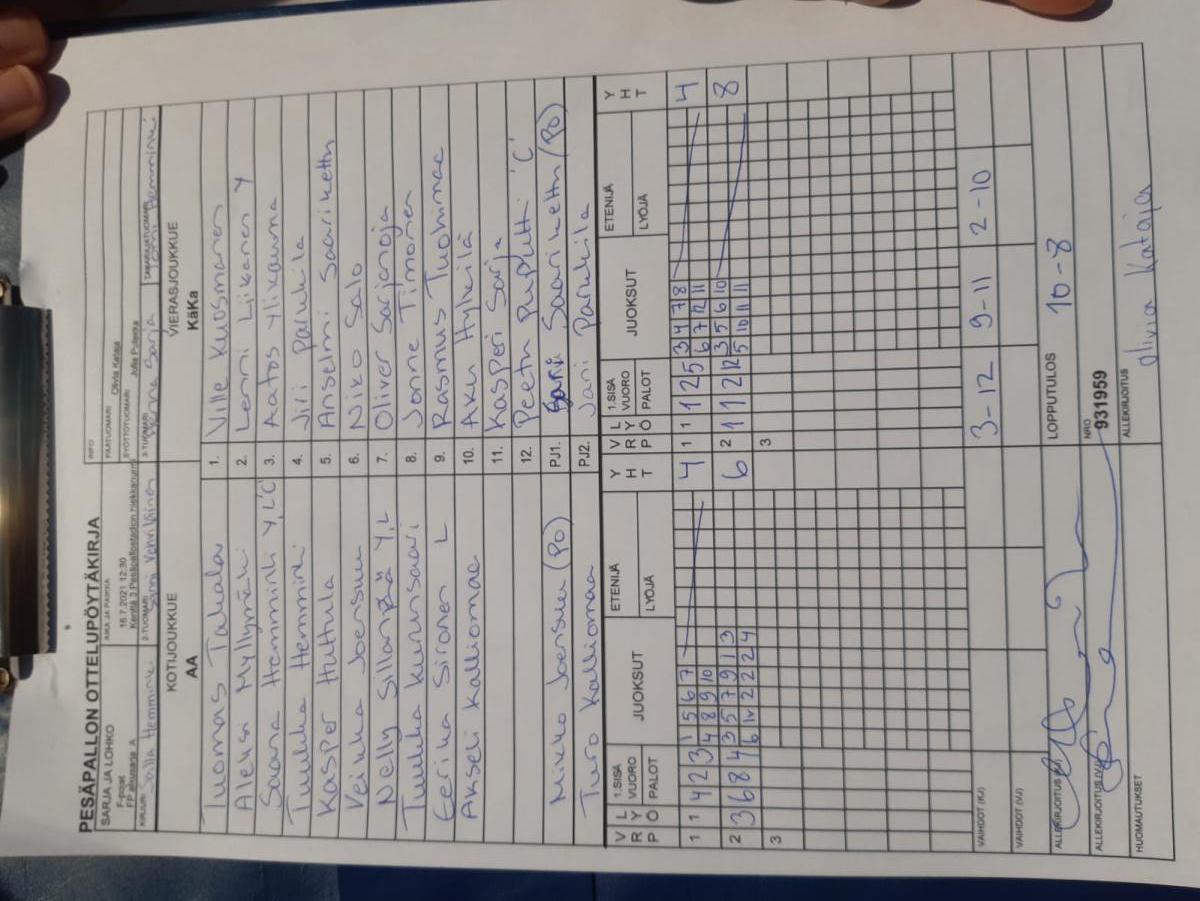 PESÄPALLON OTTELUPÖYTÄKIRJA
SARJA JA LOHKO
F-pojat
AIKA JA PAIKKA
16.7.2021 12:30
Kenttä 3 Pesäpallostadion hiekkanurmi
INFO
PÄÄTUOMARI Olivia Kataja
SYÖTTÖTUOMARI
KIRJURI Salla Hemminki
2-TUOMARI
3-TUOMARI
TAKARAJATUOMARI
KOTIJOUKKUE
AA
VIERASJOUKKUE
KäKa
Tuomas Takala 1. Ville Kuosmanen
Aleksi Myllymäki 2. Lenni Liikanen Y
Saara Hemminki Y, L'C' 3. Aatos Ylikauma
Tuukka Hemminki 4. Jiri Parkkila
Kasper Huttula 5. Anselmi Saariketttu
Veikka Joensuu 6. Niko Salo
Nelly Sillanpää Y, L 7. Oliver Sarjanoja
Tuukka Kuurinsaari 8. Jonne Timonen
Eerika Sironen L 9. Rasmus Tuohimaa
Akseli Kalliomaa 10. Aku Hylkilä
11. Kasperi Sarja
12. Peetu Puputti 'C'
Mikko Joensuu (PO) PJ1. Sami Saarikettu (PO)
Turo Kalliomaa PJ2. Jani Parkkila
V R P
L Y Ö
1.SISÄ VUORO PALOT
JUOKSUT
ETENIJÄ
LYÖJÄ
Y H T
V R P
L Y Ö
1.SISÄ VUORO PALOT
JUOKSUT
ETENIJÄ
LYÖJÄ
Y H T
1 1 4 2 3 1 5 6 7 4 1 1 1 2 5 3 4 7 8 4
4 8 9 10 6 7 12 11
2 3 6 8 4 3 5 7 9 1 3 6 2 1 1 2 12 3 5 6 10 8
6 2 2 2 4 5 10 11 11
3 3
VAIHDOT (KJ) 3-12 9-11 2-10
VAIHDOT (VJ)
ALLEKIRJOITUS (KJ)
LOPPUTULOS 10-8
ALLEKIRJOITUS (VJ)
NRO 931959
HUOMAUTUKSET
ALLEKIRJOITUS Olivia Kataja